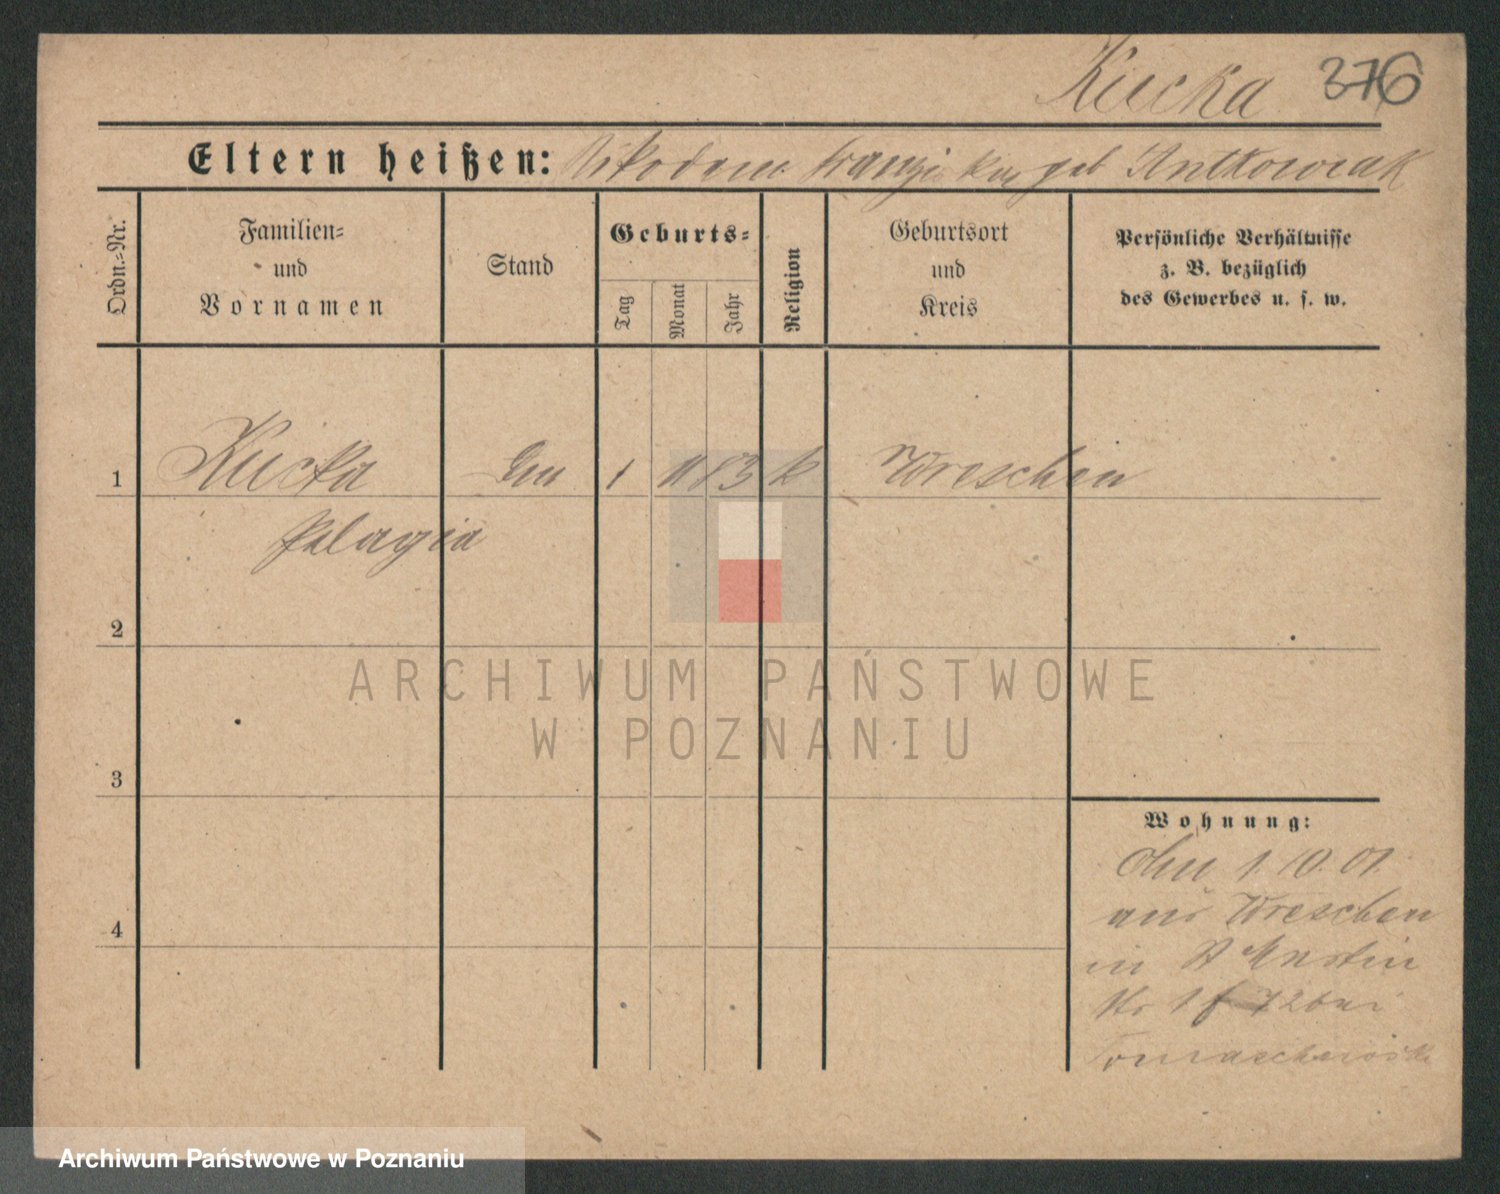 Kucka 376
Eltern heißen: Nikodem Franziska geb Antkowiak
Ordn.-Nr.
Familien-
und
Vornamen
Stand
Geburts-
Tag
Monat
Jahr
Religion
Geburtsort
und
Kreis
Persönliche Verhältnisse
z. B. bezüglich
des Gewerbes u. s. w.
1 Kucka 1 11 83 k Wreschen
Pelagia
2
3
4
Wohnung:
1. 10. 01.
aus Wreschen
in St Martin
No 72 bei
ARCHIWUM PAŃSTWOWE
W POZNANIU
Archiwum Państwowe w Poznaniu